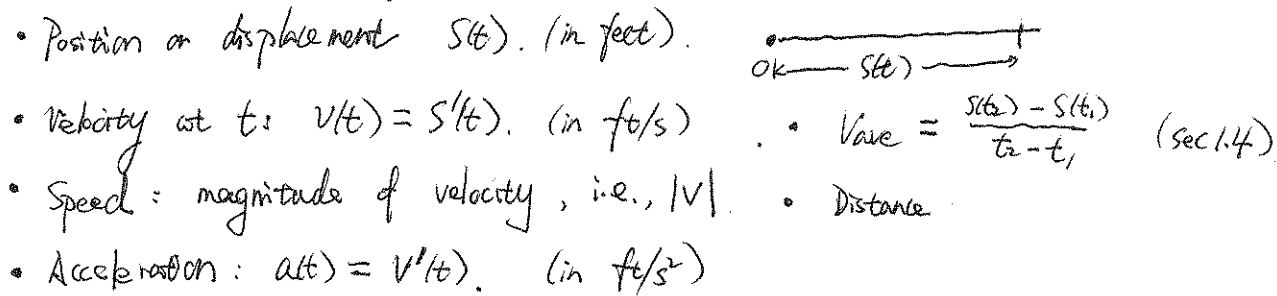 • Position or displacement S(t). (in feet).
0 S(t)
• Velocity at t: V(t) = S'(t). (in ft/s)
• Vave = (S(t₂) - S(t₁))/(t₂ - t₁) (sec 1.4)
• Speed : magnitude of velocity, i.e., |V|.
• Distance
• Acceleration : a(t) = V'(t). (in ft/s²)